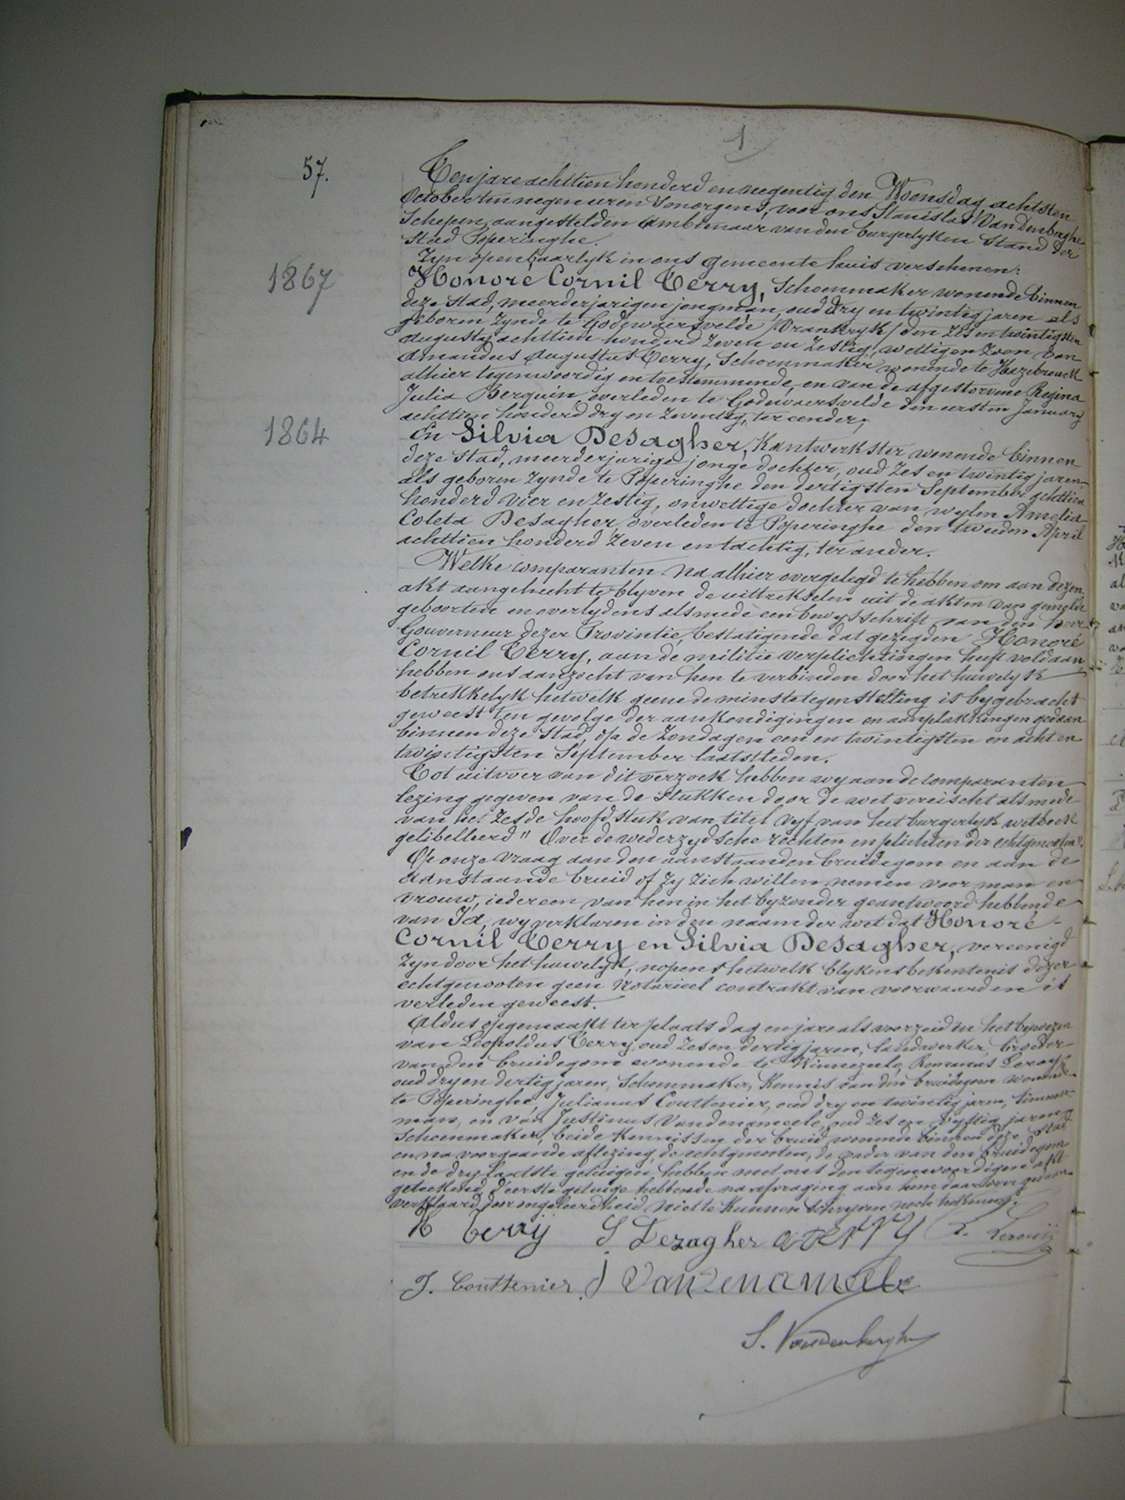 1
57.
Ten jare achttien honderd en negentig den Woensdag achtsten
October ten negen uren s'morgens, voor ons Stanislas Vandenberghe
Schepen, aangestelden Ambtenaar van den burgerlyken Stand der
Stad Poperinghe.
Zyn openbaarlyk in ons gemeente huis verschenen:
1867
Honoré Cornil Terry, Schoenmaker wonende binnen
deze stad, meerderjarigen jongman, oud dry en twintig jaren als
geboren zynde te Godewaersvelde (Vrankryk) den zes en twintigsten
Augusty achttien honderd zeven en zestig, wettigen zoon van
Amandus Augustus Terry, Schoenmaker wonende te Hazebrouck
alhier tegenwoordig en toestemmende, en van de afgestorvene Regina
Julia Berquin overleden te Godewaersvelde den eersten January
achttien honderd dry en zeventig, ter eender,
1864
En Silvia Desagher, Kantwerkster wonende binnen
deze stad, meerderjarige jonge dochter, oud zes en twintig jaren
als geboren zynde te Poperinghe den dertigsten September achttien
honderd vier en zestig, onwettige dochter van wylen Amelia
Coleta Desagher, overleden te Poperinghe den tweeden April
achttien honderd zeven en tachtig, ter ander.
Welke comparanten na alhier overgelegd te hebben om aan dezen
akt aangehecht te blyven de uittrekselen uit de akten van gemelde
geboorten en overlydens alsmede een bewysschrift van den heer
Gouverneur dezer Provintie, bestatigende dat gezegden Honoré
Cornil Terry, aan de militie verplichtingen heeft voldaan
hebben ons aanzocht van hen te verbinden door het huwelyk
betrekkelyk hetwelk geene de minste tegenstelling is bygebracht
geweest ten gevolge der aankondigingen en aanplakkingen gedaan
binnen deze stad, op de Zondagen een en twintigsten en acht en
twintigsten September laatstleden.
Tot uitvoer van dit verzoek hebben wy aan de comparanten
lezing gegeven van de stukken door de wet vereischt alsmede
van het zesde hoofdstuk van titel vyf van het burgerlyk wetboek
gelibelleerd "Over de wederzydsche rechten en plichten der echtgenooten".
Op onze vraag aan den aanstaanden bruidegom en aan de
aanstaande bruid of zy zich willen nemen voor man en
vrouw, iedereen van hen in het byzonder geantwoord hebbende
van Ja, wy verklaren in den naam der wet dat Honoré
Cornil Terry en Silvia Desagher, vereenigd
zyn door het huwelyk, nopens hetwelk blykens bekentenis dezer
echtgenooten geen Notarieel contrakt van voorwaarden is
verleden geweest.
Aldus opgemaakt ter plaats dag en jare als voorzeid in het bywezen
van Leopoldus Terry, oud zes en dertig jaren, landwerker, broeder
van den bruidegom wonende te Winnezeele, Romanus Leroy,
oud dry en dertig jaren, Schoenmaker, Kennis van den bruidegom wonende
te Poperinghe, Julianus Couttenier, oud dry en twintig jaren, timmer-
man, en van Justinus Vandenameele, oud zes en vyftig jaren,
Schoenmaker, beide Kennissen der bruid, wonende binnen deze stad
en na voorgaande aflezing, de echtgenooten, de vader van den bruidegom
en de dry laatste getuigen hebben met ons den tegenwoordigen akt
geteekend d'eerste getuige hebbende na afvraging aan hem daarover gedaan
verklaard door ongeleerdheid niet te kunnen schryven noch teekenen.
H Terry S Dezagher a terry
J. Couttenier J Vandenameele
S. Vandenberghe